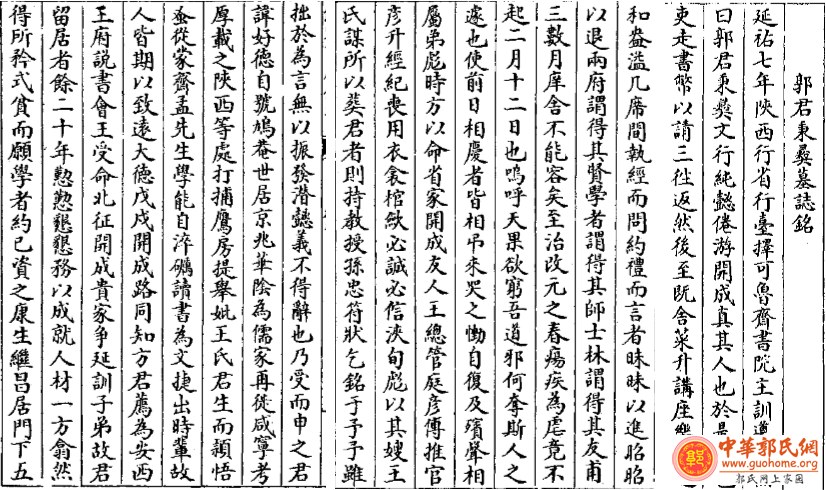 郭君秉彝墓誌銘
延祐七年陝西行省行臺擇可魯齋書院主訓導
曰郭君秉彝文行純懿倦游開成真其人也於是
吏走書幣以請三徃返然後至既舍菜升講座繼
和盎溢几席間執經而問約禮而言者昧昧以進昭昭
以退兩府謂得其賢學者謂得其師士林謂得其友甫
三數月庠舍不能容矣至治改元之春瘍疾為虐竟不
起二月十二日也嗚呼天果欲窮吾道邪何奪斯人之
遽也使前日相慶者皆相弔來哭之慟自復及殯聲相
屬弟彪時方以命省家開成友人王總管庭彥傅推官
彥升經紀喪用衣衾棺斂必誠必信浹旬彪以其嫂王
氏謀所以葬君者則持教授孫忠符狀乞銘于予予雖
拙於為言無以振發潛懿義不得辭也乃受而申之君
諱好德自號鳩菴世居京兆華陰為儒家再徙咸寧考
厚載之陝西等處打捕鷹房提舉妣王氏君生而頴悟
蚤從家齋孟先生學能自淬礪讀書為文捷出時輩故
人皆期以致遠大德戊戌開成路同知方君薦為安西
王府説書會王受命北征開成貴家爭延訓子弟故君
留居者餘二十年懃懃懇懇務以成就人材一方翕然
得所矜式貧而願學者約己資之康生繼昌居門下五
中華郭氏網
www.guohome.org
郭氏网上家园